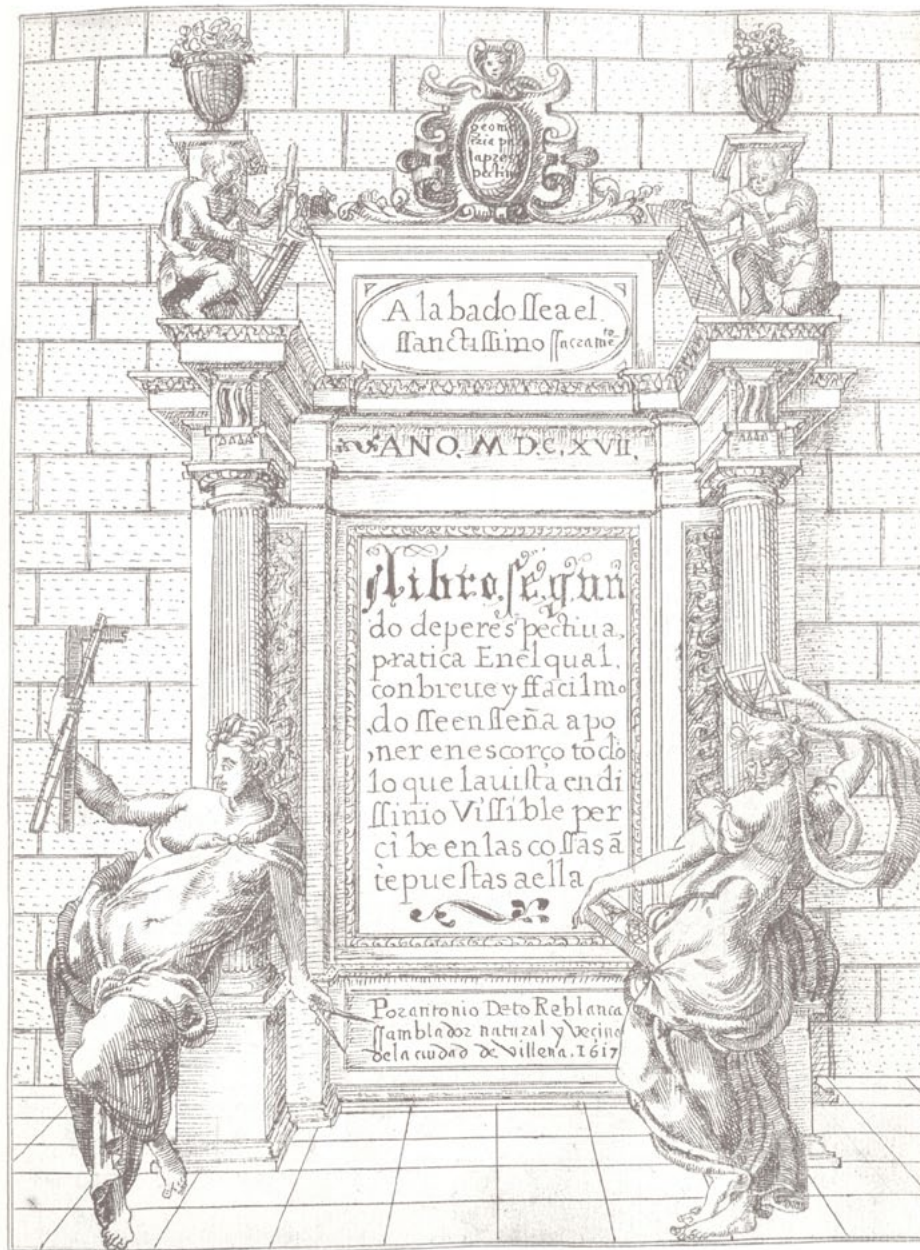 geome
tria pa
la pros
pectiva
Alabado ssea el.
ssanctissimo ssacrame.to
ANO. M D.C. XVII.
Libro. segun
do de perespectiua,
pratica En el qual.
con breue y ffacil mo
do sse ensseña a po
ner en escorço todo
lo que la uista en di
ssinio Vissible per
cibe en las cossas ã
tepuestas a ella
Por antonio De to Reblanca
ssamblador natural y Vecino
de la ciudad de Villena. 1617